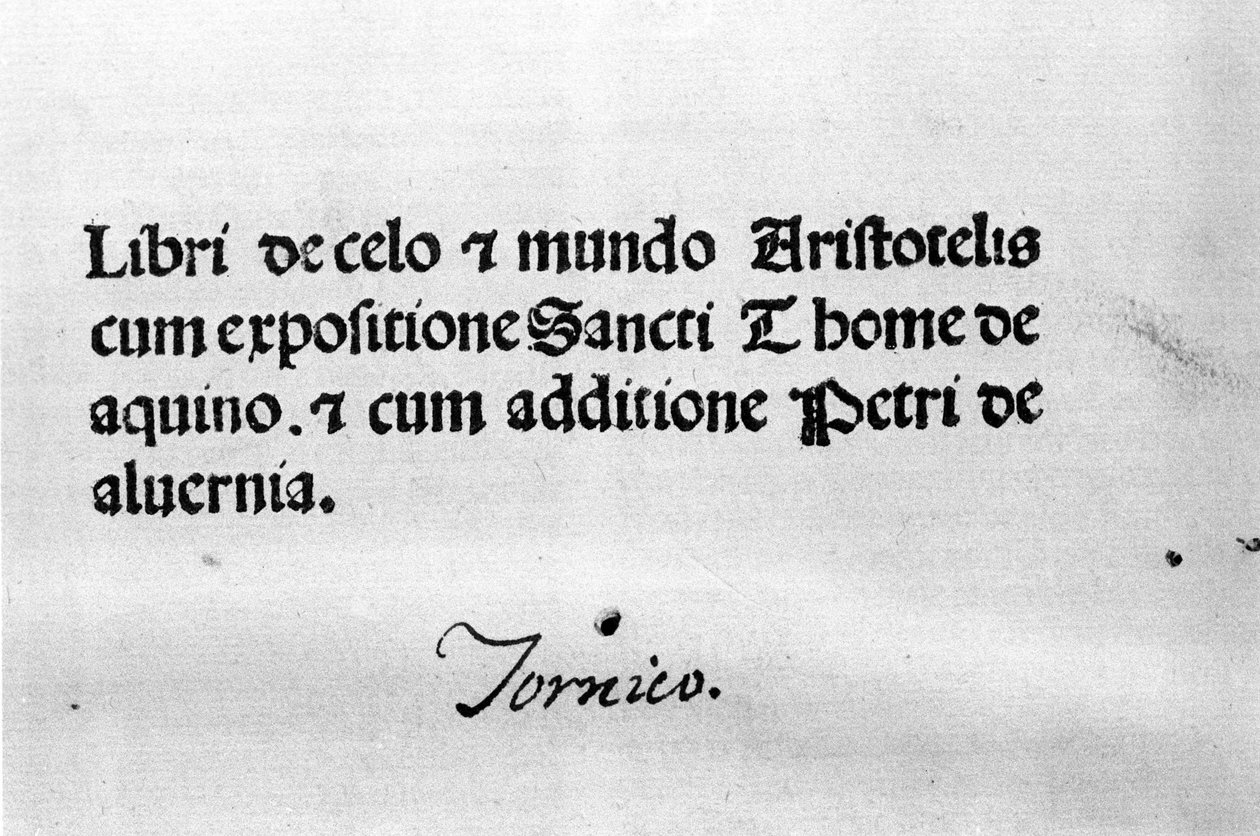 Libri de celo ⁊ mundo Aristotelis
cum expositione Sancti Thome de
aquino. ⁊ cum additione Petri de
aluernia.
Tornico.